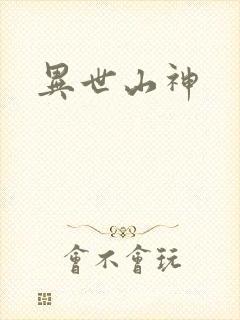 異世山神
會不會玩